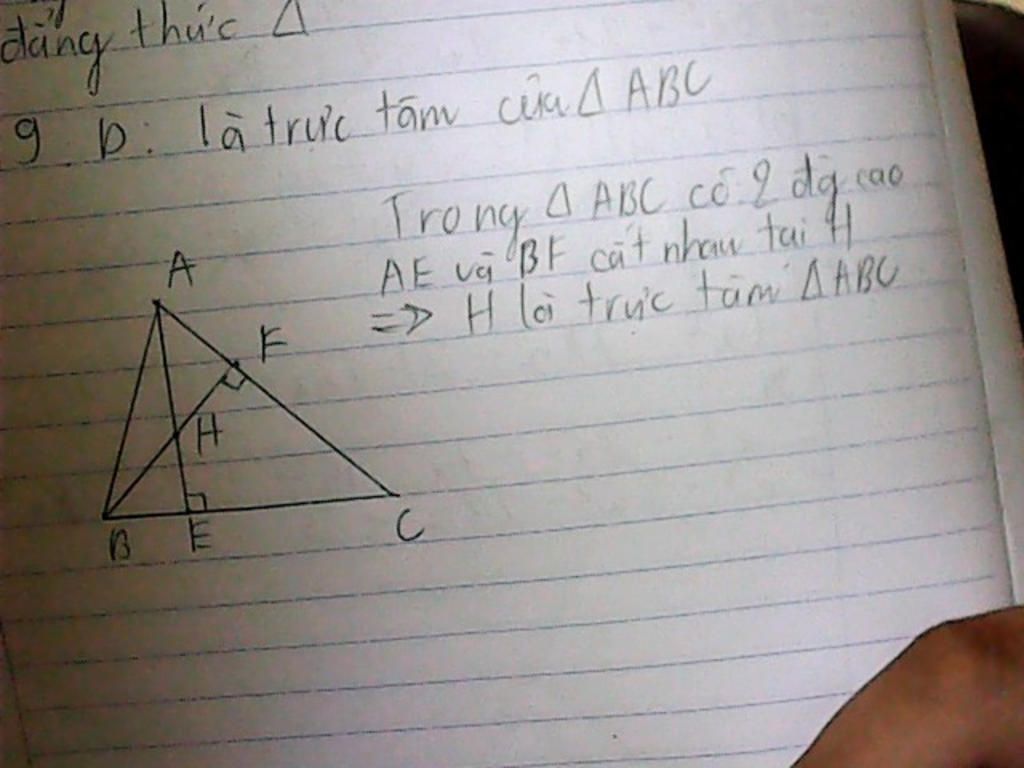 đẳng thức Δ
9 D: là trực tâm của Δ ABC
Trong Δ ABC có 2 đg cao
AE và BF cắt nhau tại H
=> H là trực tâm Δ ABC
A
F
H
B E C